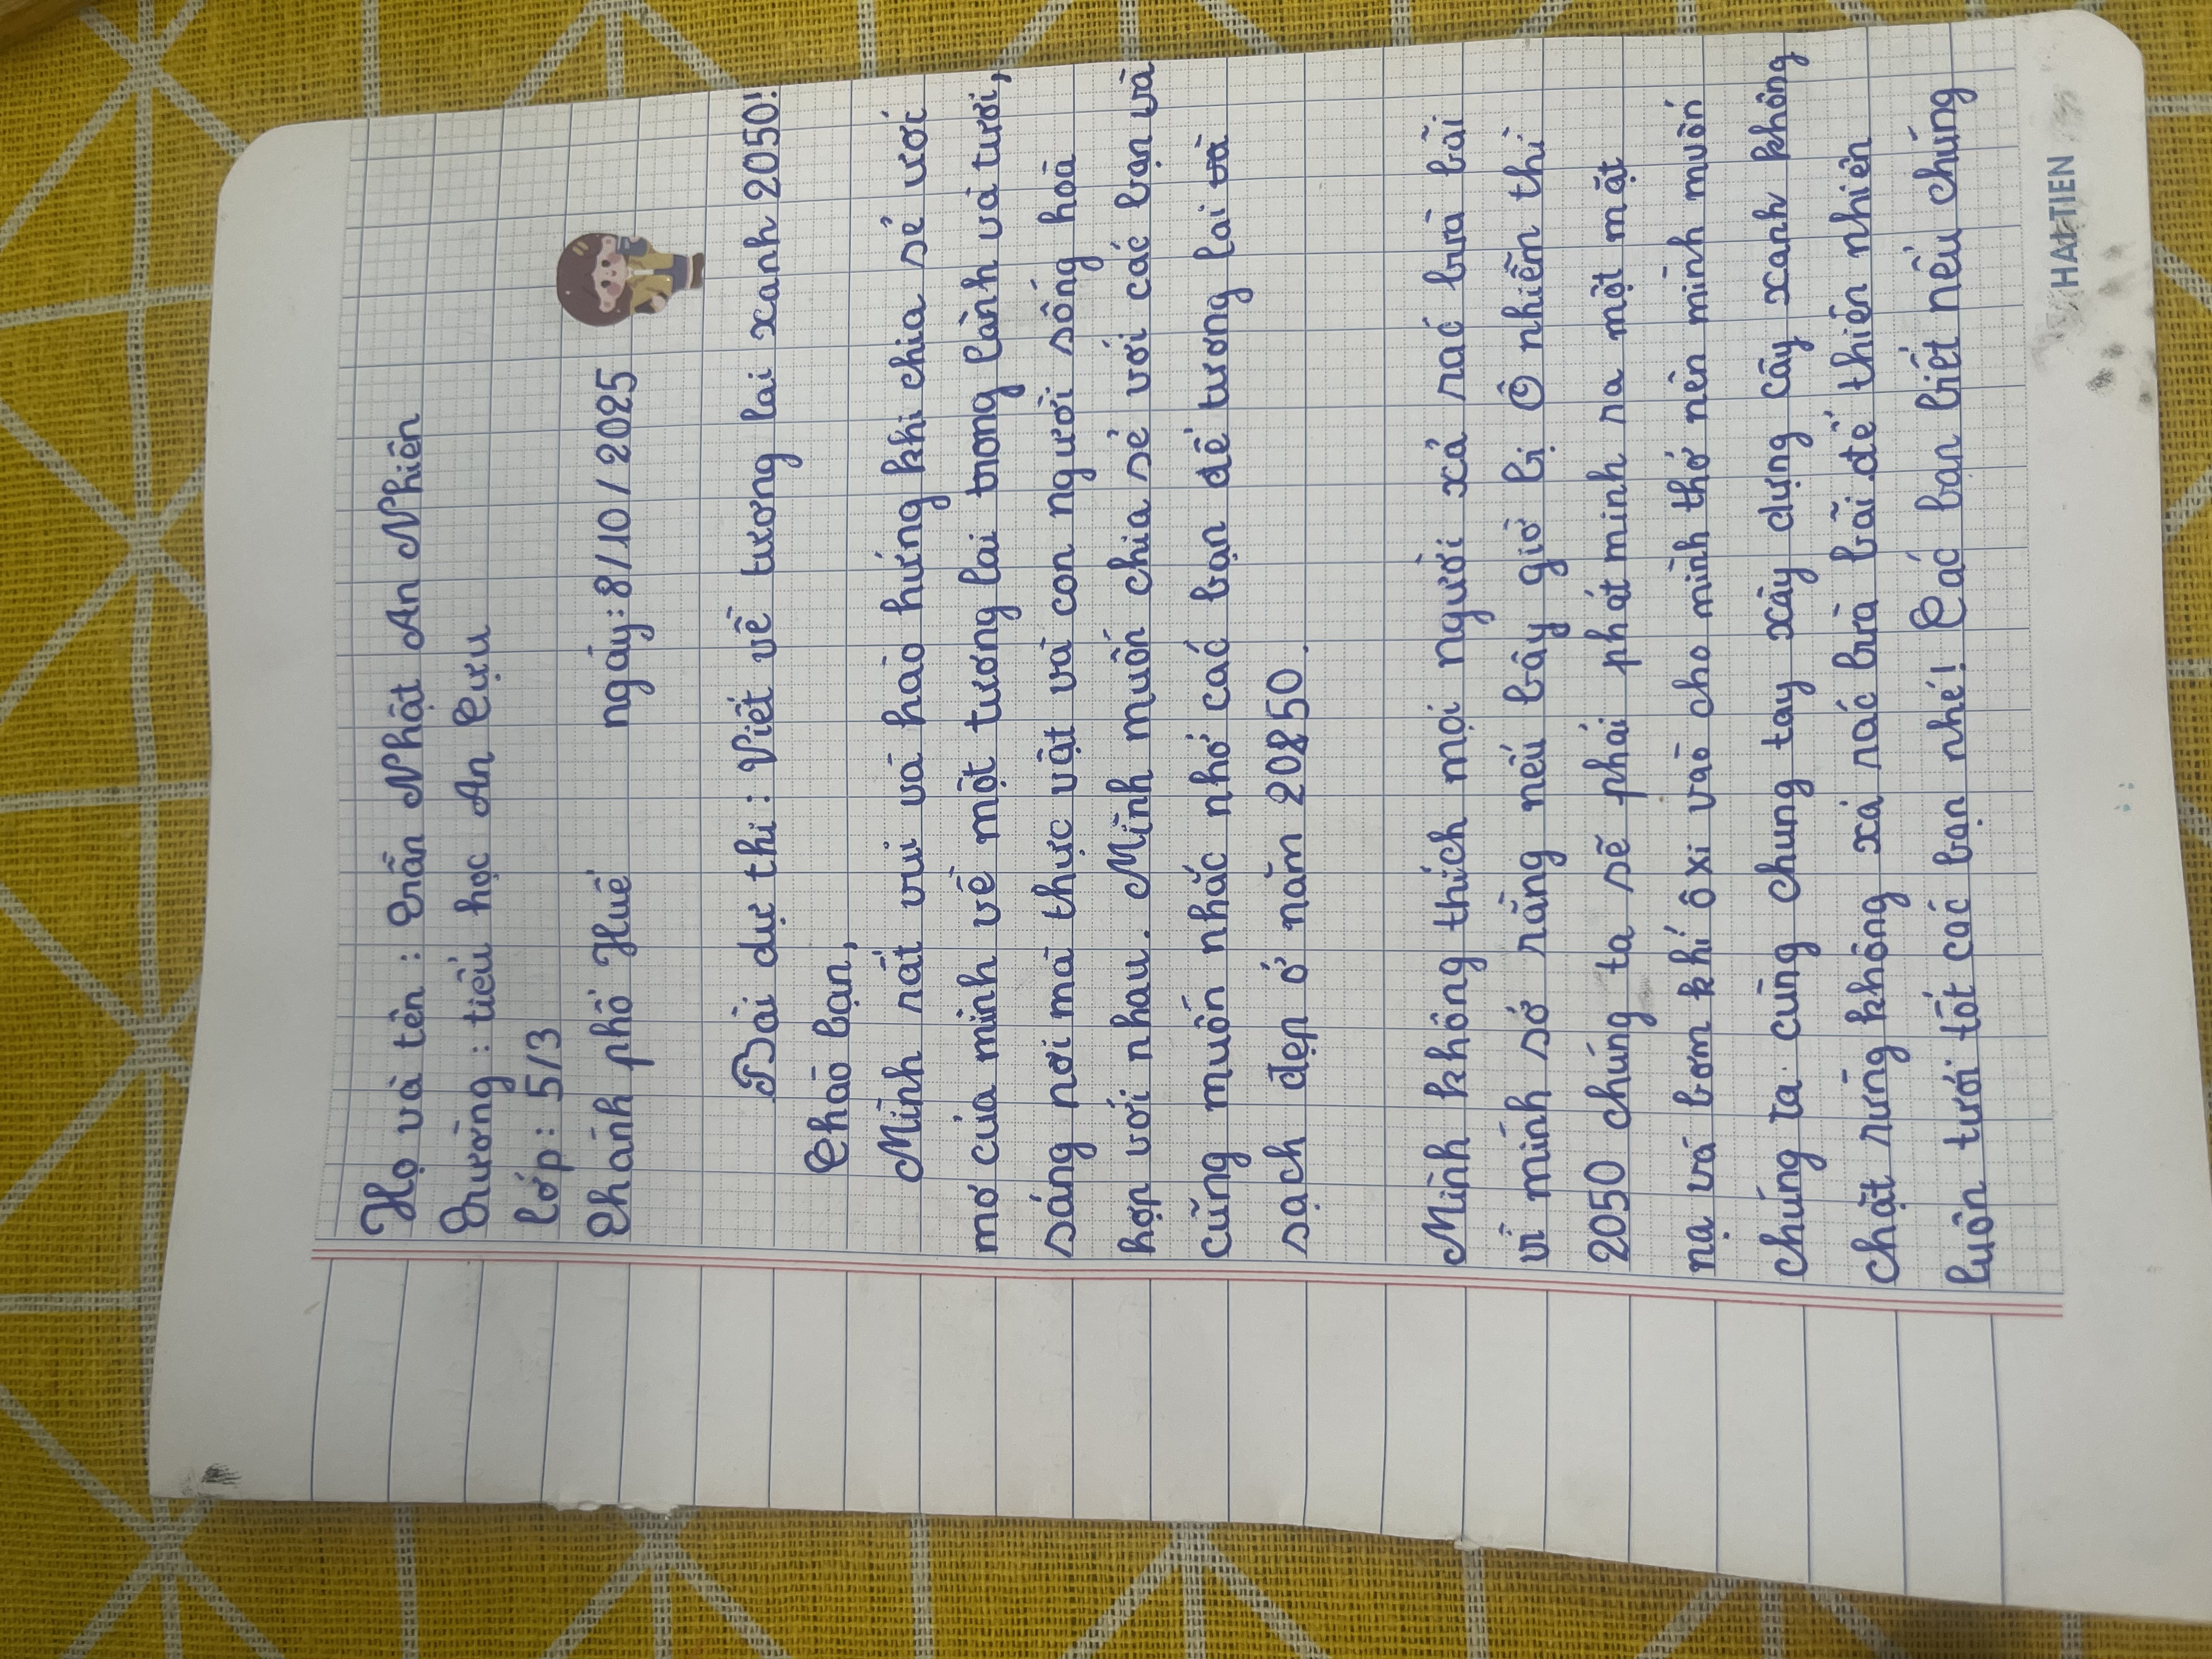 Họ và tên : Trần Nhật An Nhiên
Trường : tiểu học An Cựu
lớp: 5/3
Thành phố Huế ngày: 8/10/2025
Bài dự thi: Viết về tương lai xanh 2050!
Chào bạn,
Mình rất vui và hào hứng khi chia sẻ với
mơ của mình về một tương lai trong lành và tươi,
sáng nơi mà thực vật và con người sống hoà
hợp với nhau. Mình muốn chia sẻ với các bạn và
cũng muốn nhắc nhở các bạn để tương lai và
sạch đẹp ở năm 2050.
Mình không thích mọi người xả rác bừa bãi
vì mình sợ rằng nếu bây giờ bị Ô nhiễm thì
2050 chúng ta sẽ phải phát minh ra một mặt
nạ và bơm khí ôxi vào cho mình thở nên mình muốn
chúng ta cùng chung tay xây dựng cây xanh không
chặt rừng không xả rác bừa bãi để thiên nhiên
luôn tươi tốt các bạn nhé! Các bạn biết nếu chúng
HẢI TIẾN